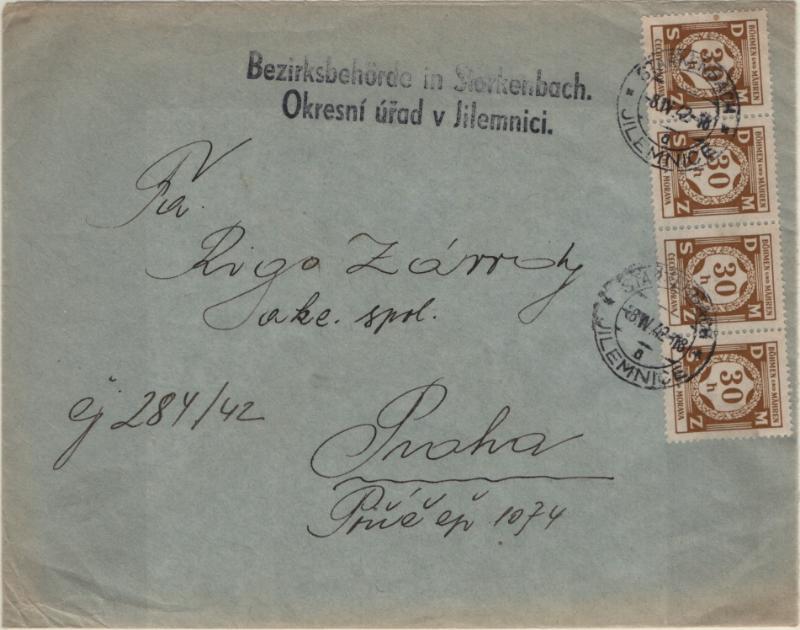 Bezirksbehörde in Starkenbach.
Okresní úřad v Jilemnici.
Fa.
Rigo Závody
akc. spol.
čj 284/42
Praha
1074
BÖHMEN UND MÄHREN
D M
S Z
30
h
ČECHY A MORAVA
BÖHMEN UND MÄHREN
D M
S Z
30
h
ČECHY A MORAVA
BÖHMEN UND MÄHREN
D M
S Z
30
h
ČECHY A MORAVA
BÖHMEN UND MÄHREN
D M
S Z
30
h
ČECHY A MORAVA
STARKENBACH
-8.IV.42-18
a
JILEMNICE
STARKENBACH
-8.IV.42-18
a
JILEMNICE